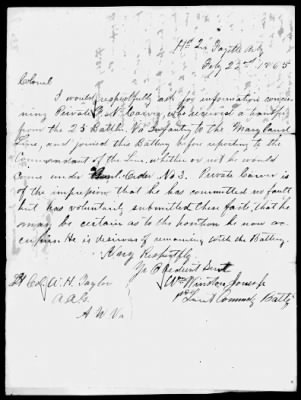 Hd Qrs Fayette Arty
Feby 22nd 1865
Colonel
I would respectfully ask for information concer
ning Private Carow, who received a transfer
from the 25 Battln. Va Infantry to the Maryland
Line, and joined the Battery before reporting to the
Commandant of the Line, whether or not he would
come under Genl. Order No 3. Private Carow is
of the impression that he has committed no fault
but has voluntarily submitted these facts, that he
may be certain as to the position he now oc-
cupies. He is desirous of remaining with the Battery.
Very Respectfly.
Yr Obedient Servt
Wm
1st Lieut Commdg Batty
Lt Col W. H. Taylor
A.A.G.
A N Va